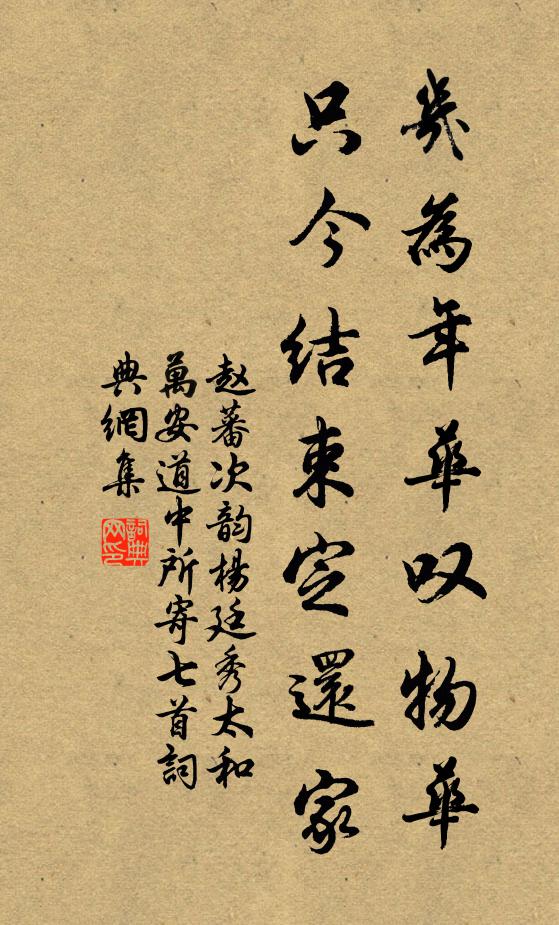 幾為年華叹物華
只今結束定還家
赵蕃次韵楊廷秀太和
萬安道中所寄七首詞
典網集
詞典网印